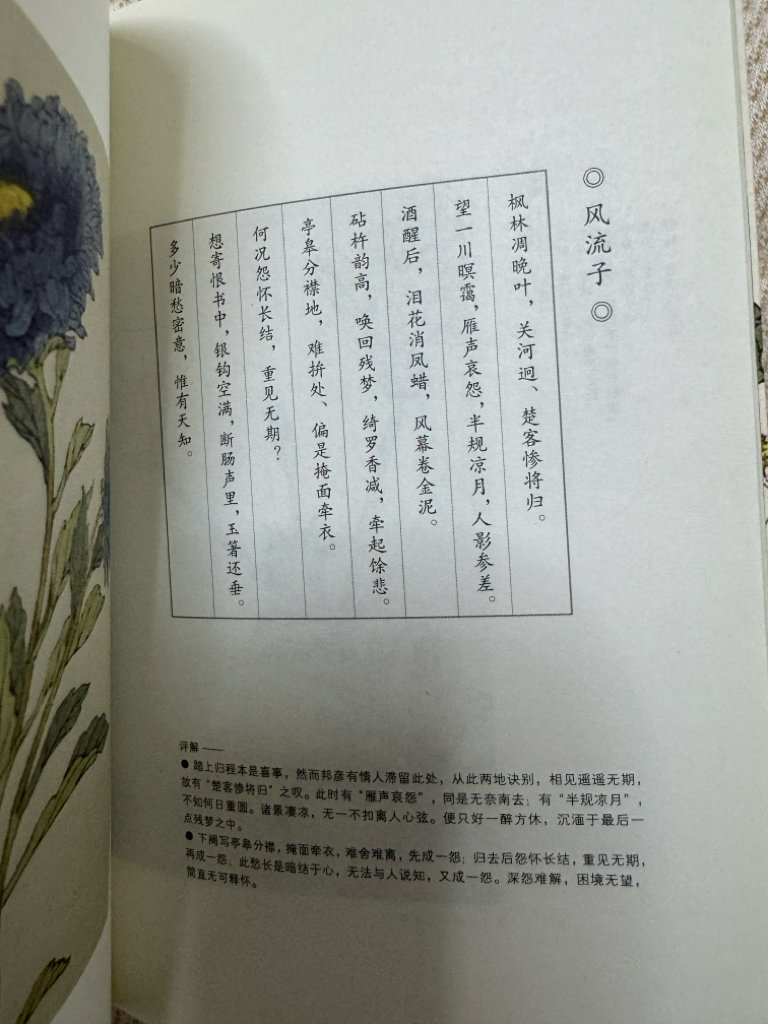 ◎风流子◎
枫林凋晚叶，关河迥、楚客惨将归。
望一川暝霭，雁声哀怨，半规凉月，人影参差。
酒醒后，泪花消凤蜡，风幕卷金泥。
砧杵韵高，唤回残梦，绮罗香减，牵起馀悲。
亭皋分襟地，难拚处、偏是掩面牵衣。
何况怨怀长结，重见无期？
想寄恨书中，银钩空满，断肠声里，玉箸还垂。
多少暗愁密意，惟有天知。
评解——
●踏上归程本是喜事，然而邦彦有情人滞留此处，从此两地诀别，相见遥遥无期，
故有“楚客惨将归”之叹。此时有“雁声哀怨”，同是无奈南去；有“半规凉月”，
不知何日重圆。诸景凄凉，无一不扣离人心弦。便只好一醉方休，沉湎于最后一
点残梦之中。
●下阕写亭皋分襟，掩面牵衣，难舍难离，先成一怨；归去后怨怀长结，重见无期，
再成一怨；此愁长是暗结于心，无法与人说知，又成一怨。深怨难解，困境无望，
简直无可释怀。